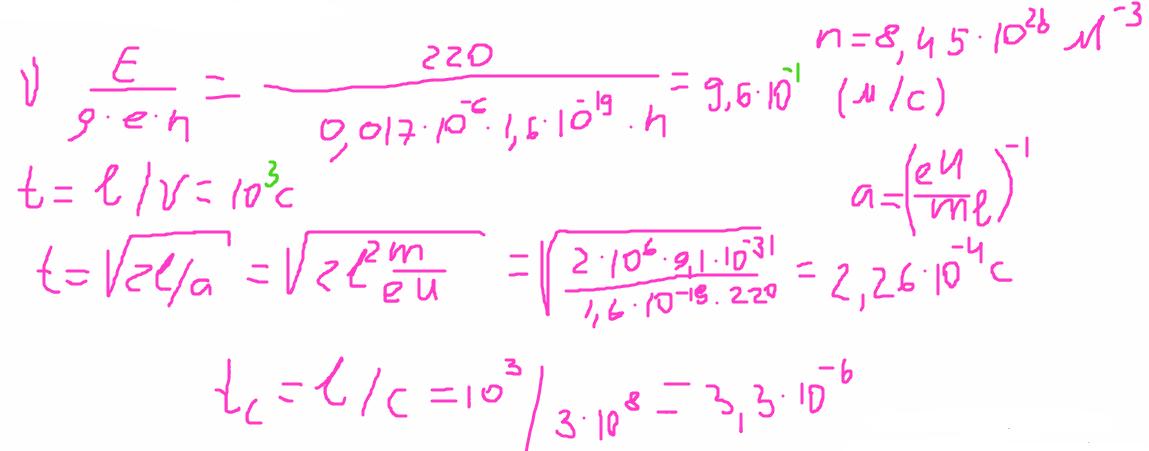 v E / (ρ · e · n) = 220 / (0,017 · 10⁻⁶ · 1,6 · 10⁻¹⁹ · n) = 9,6 · 10⁻¹ (м/с)
n = 8,45 · 10²⁸ м⁻³
t = l / v = 10³ c
a = (eU / ml)⁻¹
t = √(2l/a) = √(2l² m / eU) = √(2 · 10⁶ · 9,1 · 10⁻³¹ / 1,6 · 10⁻¹⁹ · 220) = 2,26 · 10⁻⁴ c
t_c = l / c = 10³ / 3 · 10⁸ = 3,3 · 10⁻⁶